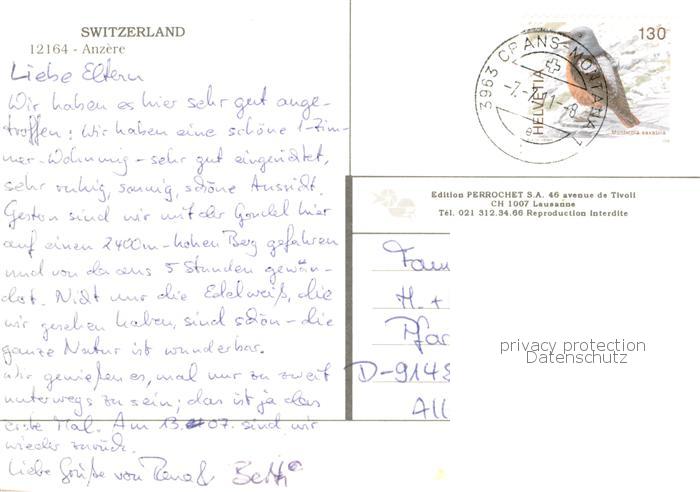 SWITZERLAND
12164 - Anzère
Liebe Eltern
Wir haben es hier sehr gut ange-
troffen: Wir haben eine schöne 1-Zim-
mer-Wohnung - sehr gut eingerichtet,
sehr ruhig, sonnig, schöne Aussicht.
Gestern sind wir mit der Gondel hier
auf einen 2400m-hohen Berg gefahren
und von da aus 5 Stunden gewan-
dert. Nicht nur die Edelweiß, die
wir gesehen haben, sind schön - die
ganze Natur ist wunderbar.
Wir genießen es, mal nur zu zweit
unterwegs zu sein; das ist ja das
erste Mal. Am 13. 07. sind wir
wieder zurück.
Liebe Grüße von Rena &
3963 CRANS-MONTANA 1
HELVETIA
130
Monticola saxatilis
Edition PERROCHET S.A. 46 avenue de Tivoli
CH 1007 Lausanne
Tél. 021 312.34.66 Reproduction Interdite
Fam
H. +
Pfar
D-9145
All
privacy protection
Datenschutz